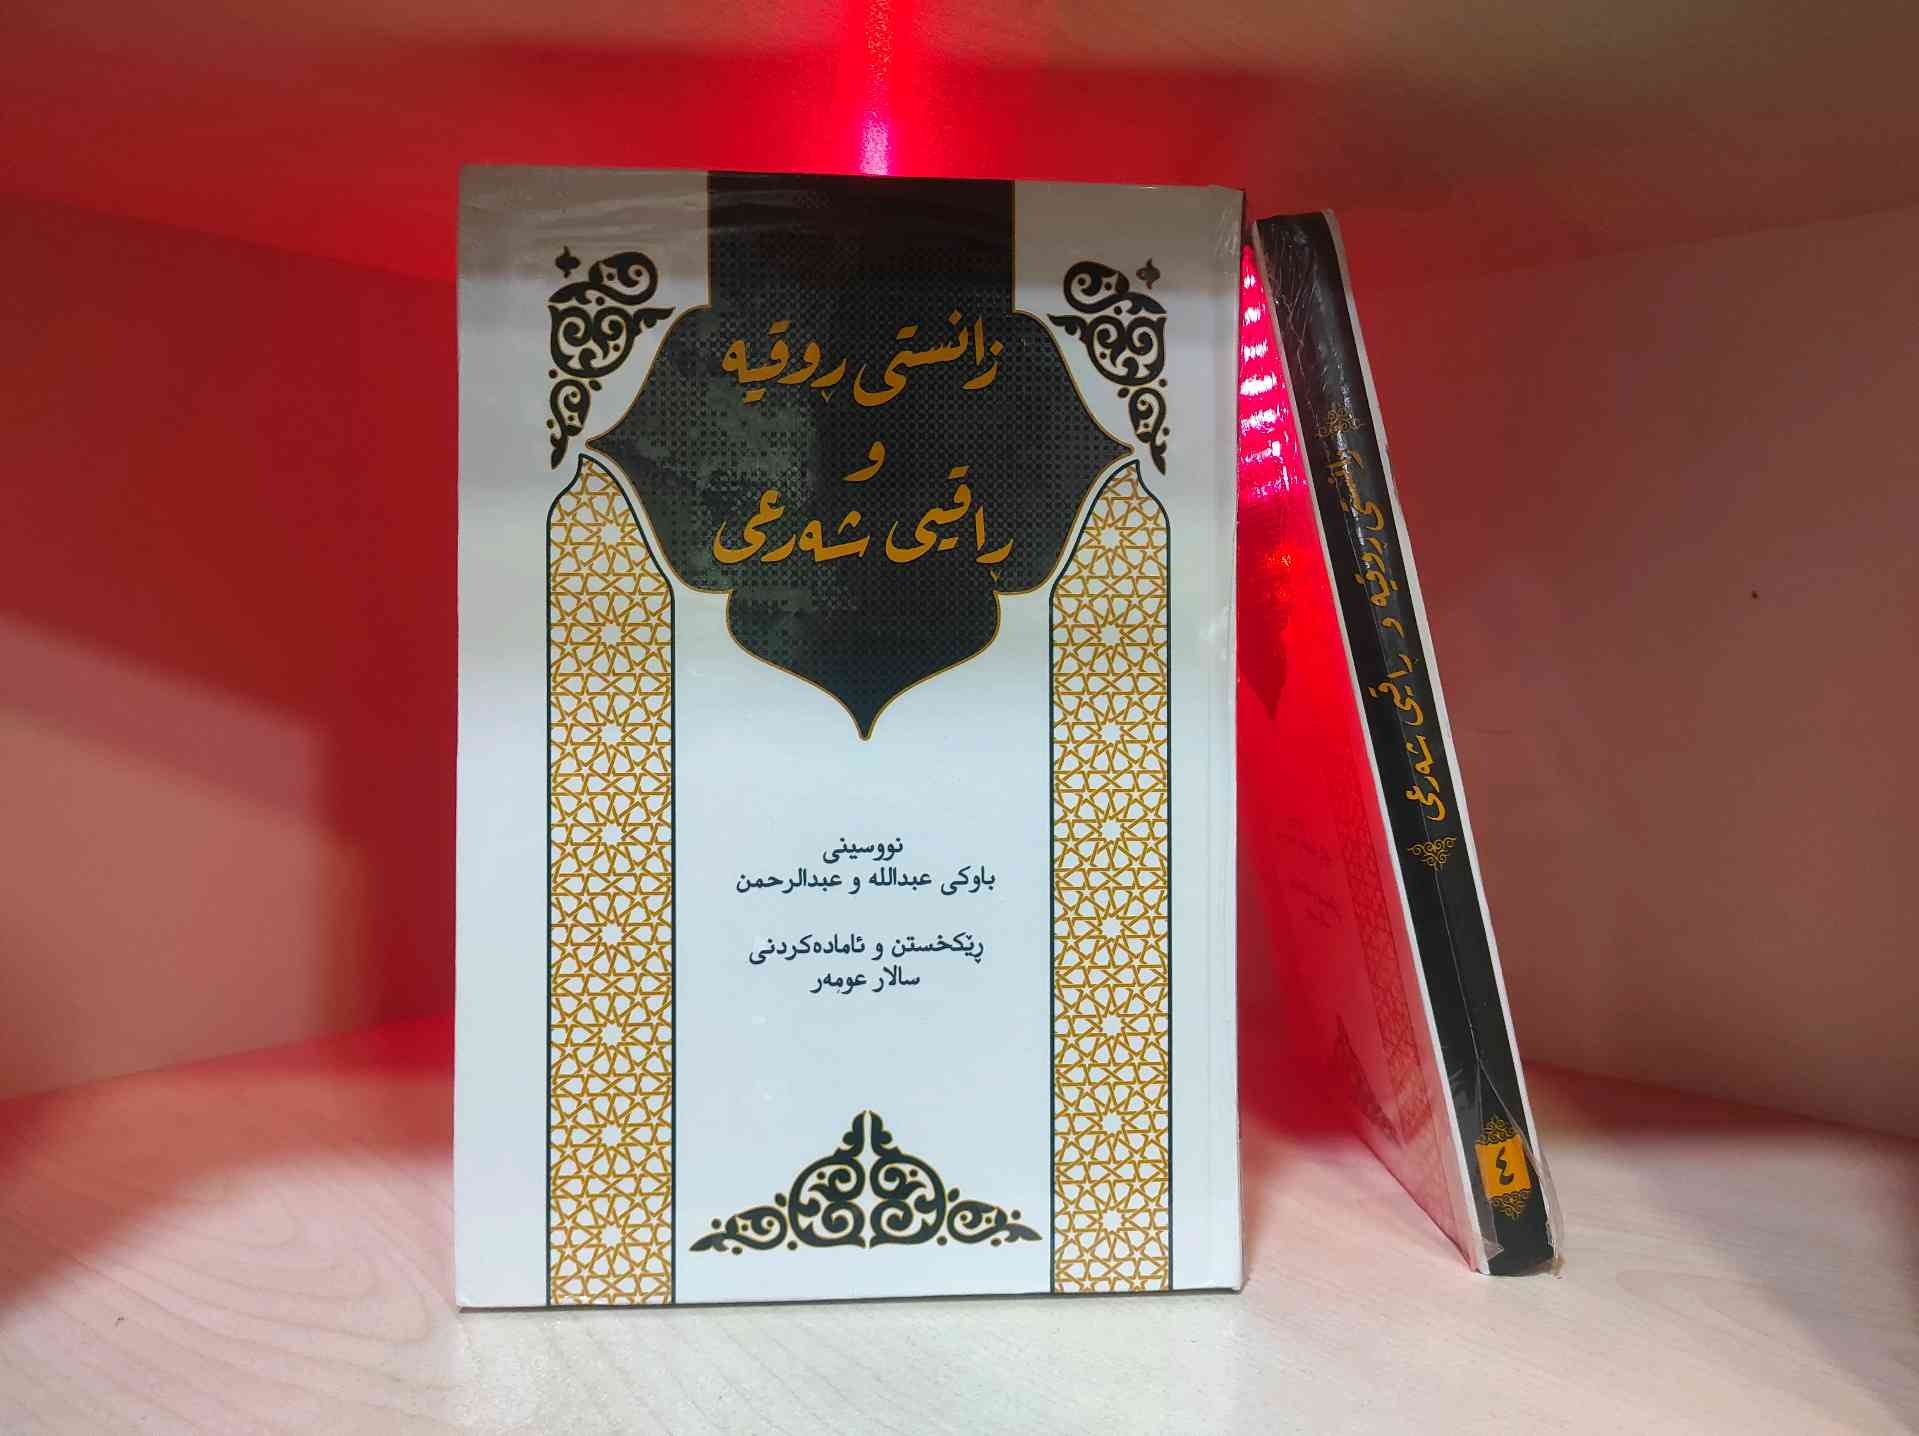 زانستی ڕوقیه
و
ڕاقیی شەرعی
نووسینی
باوکی عبدالله و عبدالرحمن
ڕێکخستن و ئامادەکردنی
سالار عومەر
زانستی ڕوقیه و ڕاقیی شەرعی
٤